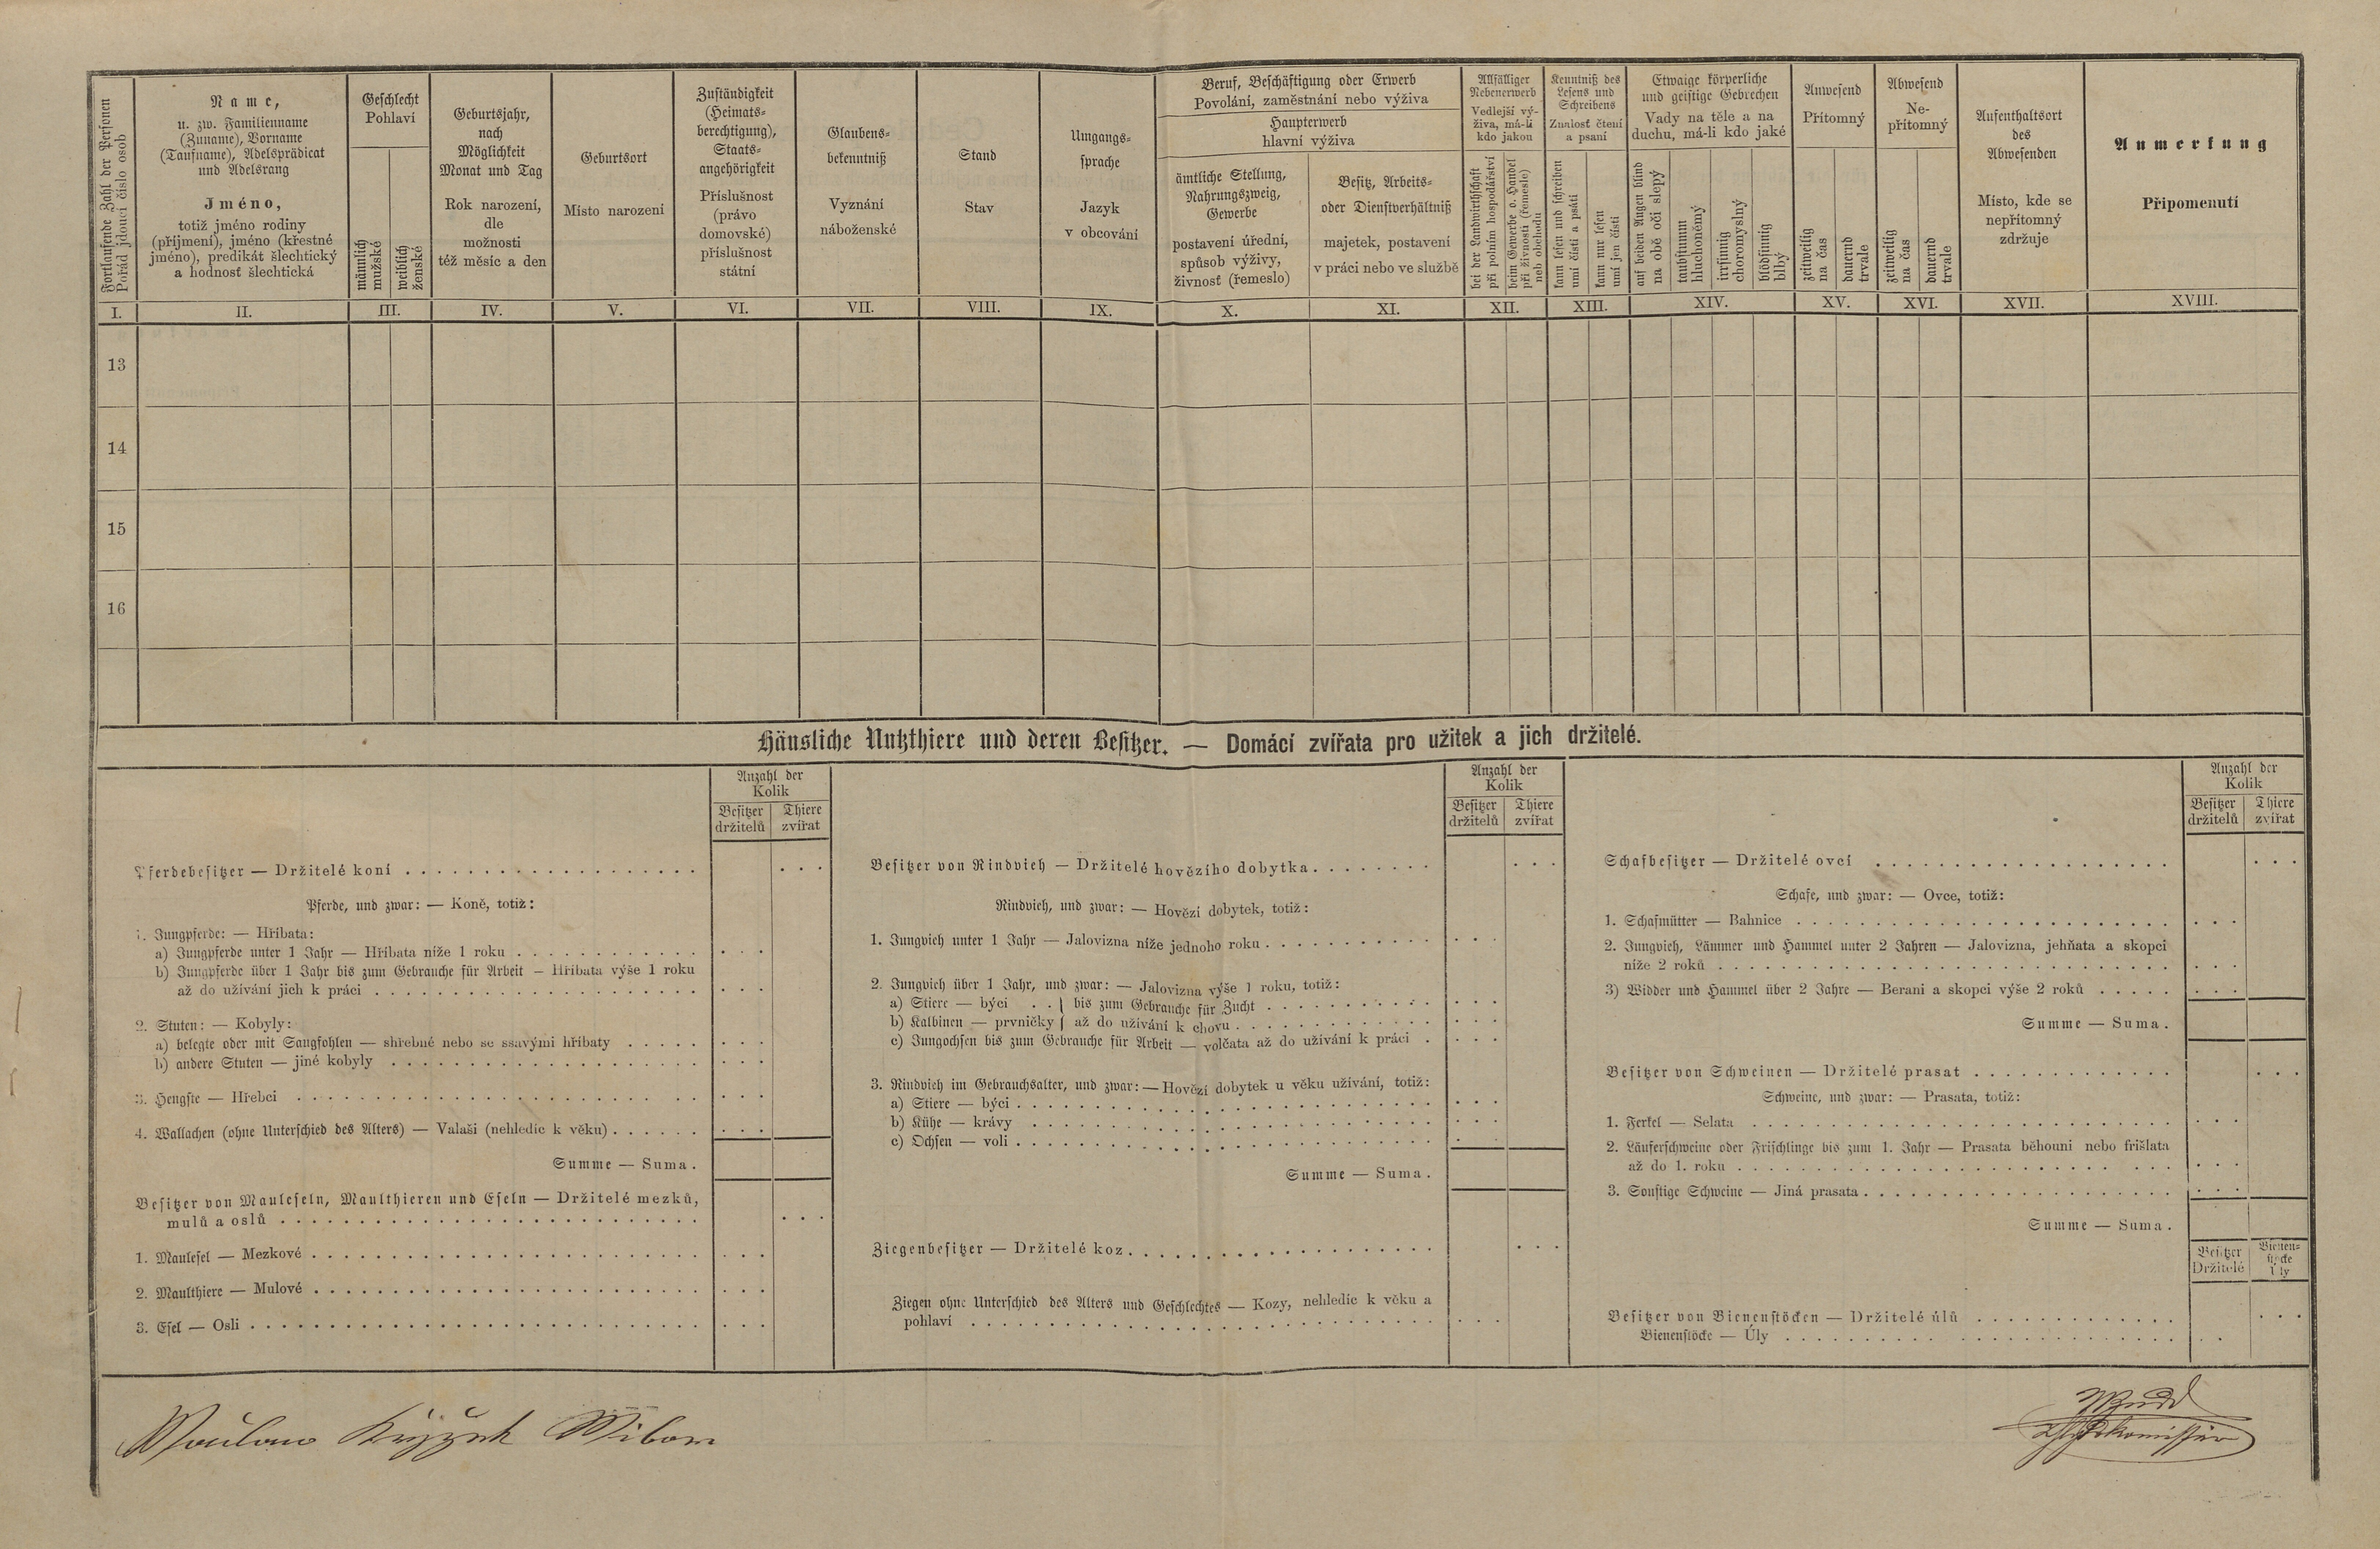 Fortlaufende Zahl der Personen
Pořád jdoucí číslo osob
Name,
u. zw. Familienname
(Zuname), Vorname
(Taufname), Adelsprädicat
und Adelsrang
Jméno,
totiž jméno rodiny
(příjmení), jméno (křestné
jméno), predikát šlechtický
a hodnosť šlechtická
Geschlecht
Pohlaví
männlich
mužské
weiblich
ženské
Geburtsjahr,
nach
Möglichkeit
Monat und Tag
Rok narození,
dle
možnosti
též měsíc a den
Geburtsort
Místo narození
Zuständigkeit
(Heimats-
berechtigung),
Staats-
angehörigkeit
Příslušnost
(právo
domovské)
příslušnost
státní
Glaubens-
bekenntniß
Vyznání
náboženské
Stand
Stav
Umgangs-
sprache
Jazyk
v obcování
Beruf, Beschäftigung oder Erwerb
Povolání, zaměstnání nebo výživa
Haupterwerb
hlavní výživa
ämtliche Stellung,
Nahrungszweig,
Gewerbe
postavení úřední,
spůsob výživy,
živnosť (řemeslo)
Besitz, Arbeits-
oder Dienstverhältniß
majetek, postavení
v práci nebo ve službě
Allfälliger
Nebenerwerb
Vedlejší vý-
živa, má-li
kdo jakou
bei der Landwirthschaft
při polním hospodářství
beim Gewerbe o. Handel
při živnosti (řemesle)
neb obchodu
Kenntniß des
Lesens und
Schreibens
Znalosť čtení
a psaní
kann lesen und schreiben
umí čísti a psáti
kann nur lesen
umí jen čísti
Etwaige körperliche
und geistige Gebrechen
Vady na těle a na
duchu, má-li kdo jaké
auf beiden Augen blind
na obě oči slepý
taubstumm
hluchoněmý
irrsinnig
choromyslný
blödsinnig
blbý
Anwesend
Přítomný
zeitweilig
na čas
dauernd
trvale
Abwesend
Ne-
přítomný
zeitweilig
na čas
dauernd
trvale
Aufenthaltsort
des
Abwesenden
Místo, kde se
nepřítomný
zdržuje
Anmerkung
Připomenutí
I. II. III. IV. V. VI. VII. VIII. IX. X. XI. XII. XIII. XIV. XV. XVI. XVII. XVIII.
13
14
15
16
Häusliche Nutzthiere und deren Besitzer. — Domácí zvířata pro užitek a jich držitelé.
Anzahl der
Kolik
Besitzer
držitelů
Thiere
zvířat
Pferdebesitzer — Držitelé koní
Pferde, und zwar: — Koně, totiž:
1. Jungpferde: — Hříbata:
a) Jungpferde unter 1 Jahr — Hříbata níže 1 roku
b) Jungpferde über 1 Jahr bis zum Gebrauche für Arbeit — Hříbata výše 1 roku
až do užívání jich k práci
2. Stuten: — Kobyly:
a) belegte oder mit Saugfohlen — shřebné nebo se ssavými hříbaty
b) andere Stuten — jiné kobyly
3. Hengste — Hřebci
4. Wallachen (ohne Unterschied des Alters) — Valaši (nehledíc k věku)
Summe — Suma.
Besitzer von Mauleseln, Maulthieren und Eseln — Držitelé mezků,
mulů a oslů
1. Maulesel — Mezkové
2. Maulthiere — Mulové
3. Esel — Osli
Anzahl der
Kolik
Besitzer
držitelů
Thiere
zvířat
Besitzer von Rindvieh — Držitelé hovězího dobytka
Rindvieh, und zwar: — Hovězí dobytek, totiž:
1. Jungvieh unter 1 Jahr — Jalovizna níže jednoho roku
2. Jungvieh über 1 Jahr, und zwar: — Jalovizna výše 1 roku, totiž:
a) Stiere — býci . . } bis zum Gebrauche für Zucht
b) Kalbinen — prvničky } až do užívání k chovu
c) Jungochsen bis zum Gebrauche für Arbeit — volčata až do užívání k práci
3. Rindvieh im Gebrauchsalter, und zwar: — Hovězí dobytek u věku užívání, totiž:
a) Stiere — býci
b) Kühe — krávy
c) Ochsen — voli
Summe — Suma.
Ziegenbesitzer — Držitelé koz
Ziegen ohne Unterschied des Alters und Geschlechtes — Kozy, nehledíc k věku a
pohlaví
Anzahl der
Kolik
Besitzer
držitelů
Thiere
zvířat
Schafbesitzer — Držitelé ovcí
Schafe, und zwar: — Ovce, totiž:
1. Schafmütter — Bahnice
2. Jungvieh, Lämmer und Hammel unter 2 Jahren — Jalovizna, jehňata a skopci
níže 2 roků
3) Widder und Hammel über 2 Jahre — Berani a skopci výše 2 roků
Summe — Suma.
Besitzer von Schweinen — Držitelé prasat
Schweine, und zwar: — Prasata, totiž:
1. Ferkel — Selata
2. Läuferschweine oder Frischlinge bis zum 1. Jahr — Prasata běhouni nebo frišlata
až do 1. roku
3. Sonstige Schweine — Jiná prasata
Summe — Suma.
Besitzer
Držitelé
Bienen-
stöcke
Úly
Besitzer von Bienenstöcken — Držitelé úlů
Bienenstöcke — Úly